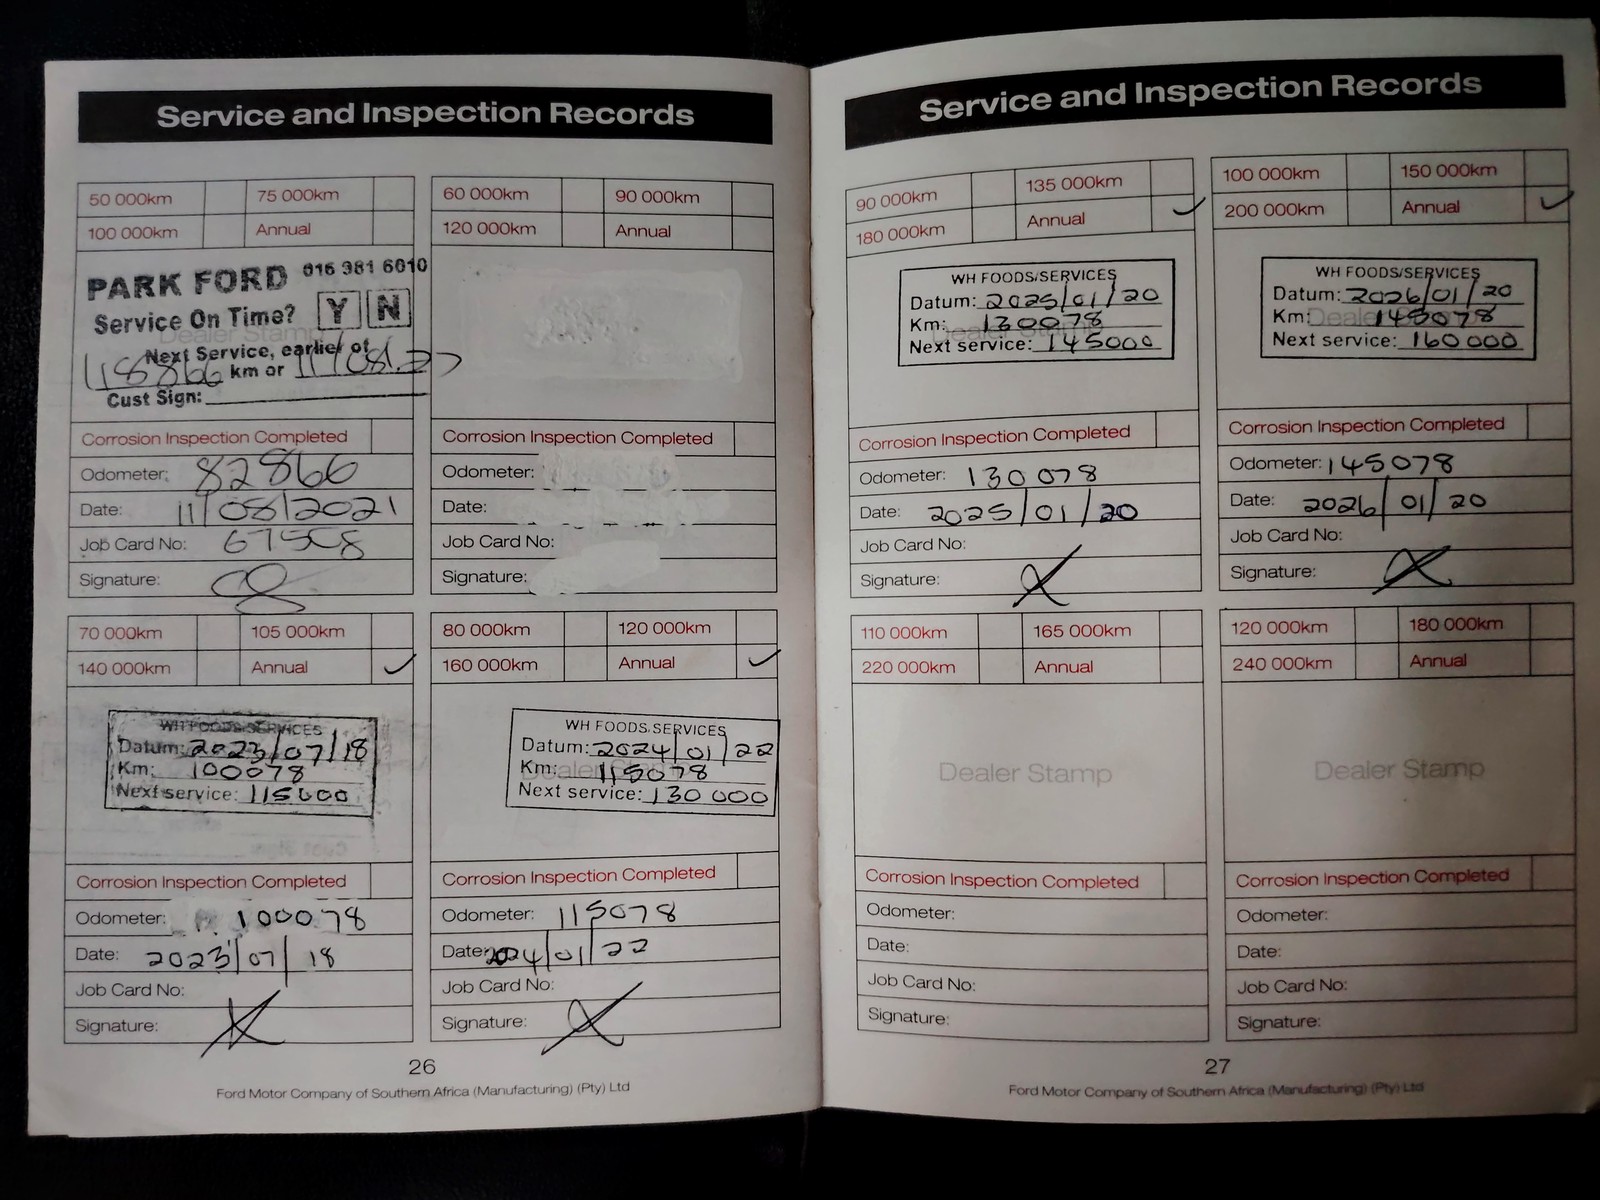 Service and Inspection Records
50 000km 75 000km
100 000km Annual
PARK FORD 016 981 6010
Service On Time? Y N
Dealer Stamp
Next Service, earlier of
km or
Cust Sign:
Corrosion Inspection Completed
Odometer: 82866
Date: 11/08/2021
Job Card No:
Signature:
60 000km 90 000km
120 000km Annual
Corrosion Inspection Completed
Odometer:
Date:
Job Card No:
Signature:
70 000km 105 000km
140 000km Annual
WH FOODS/SERVICES
Datum: 2023/07/18
Km: 100078
Next service: 115000
Corrosion Inspection Completed
Odometer: 100078
Date: 2023/07/18
Job Card No:
Signature:
80 000km 120 000km
160 000km Annual
WH FOODS/SERVICES
Datum: 2024/01/22
Km: 115078
Next service: 130 000
Corrosion Inspection Completed
Odometer: 115078
Date: 2024/01/22
Job Card No:
Signature:
26
Ford Motor Company of Southern Africa (Manufacturing) (Pty) Ltd
Service and Inspection Records
90 000km 135 000km
180 000km Annual
WH FOODS/SERVICES
Datum: 2025/01/20
Km: 130078
Next service: 145000
Corrosion Inspection Completed
Odometer: 130 078
Date: 2025/01/20
Job Card No:
Signature:
100 000km 150 000km
200 000km Annual
WH FOODS/SERVICES
Datum: 2026/01/20
Km: 145078
Next service: 160 000
Corrosion Inspection Completed
Odometer: 145078
Date: 2026/01/20
Job Card No:
Signature:
110 000km 165 000km
220 000km Annual
Dealer Stamp
Corrosion Inspection Completed
Odometer:
Date:
Job Card No:
Signature:
120 000km 180 000km
240 000km Annual
Dealer Stamp
Corrosion Inspection Completed
Odometer:
Date:
Job Card No:
Signature:
27
Ford Motor Company of Southern Africa (Manufacturing) (Pty) Ltd